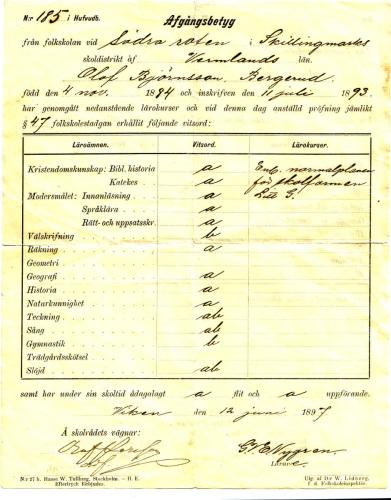 N:r 185 i Hufvudb.
Afgångsbetyg
från folkskolan vid Södra roten i Skillingmarks
skoldistrikt af Vermlands län.
Olof Björnsson, Bergerud,
född d 4 nov. 1884 och inskrifven den 11 juli 1893.
har genomgått nedanstående lärokurser och vid denna dag anställd pröfning jämlikt
§ 47 folkskolestadgan erhållit följande vitsord:
Läroämnen. Vitsord. Lärokurser.
Kristendomskunskap: Bibl. historia a Enl. normalplanen
Katekes a för skolformen
Modersmålet: Innanläsning a Litt G.
Språklära a
Rätt- och uppsatsskr. a
Välskrifning b
Räkning a
Geometri
Geografi a
Historia a
Naturkunnighet a
Teckning ab
Sång ab
Gymnastik b
Trädgårdsskötsel
Slöjd ab
samt har under sin skoltid ådagalagt a flit och a uppförande.
Viken den 12 juni 1897
Å skolrådets vägnar:
G. E. Nygren
Lärare.
N:r 27 b. Hasse W. Tullberg, Stockholm. - H. E.
Eftertryck förbjudes.
Utg. af D:r W. Lidberg,
f. d. Folkskoleinspektör.